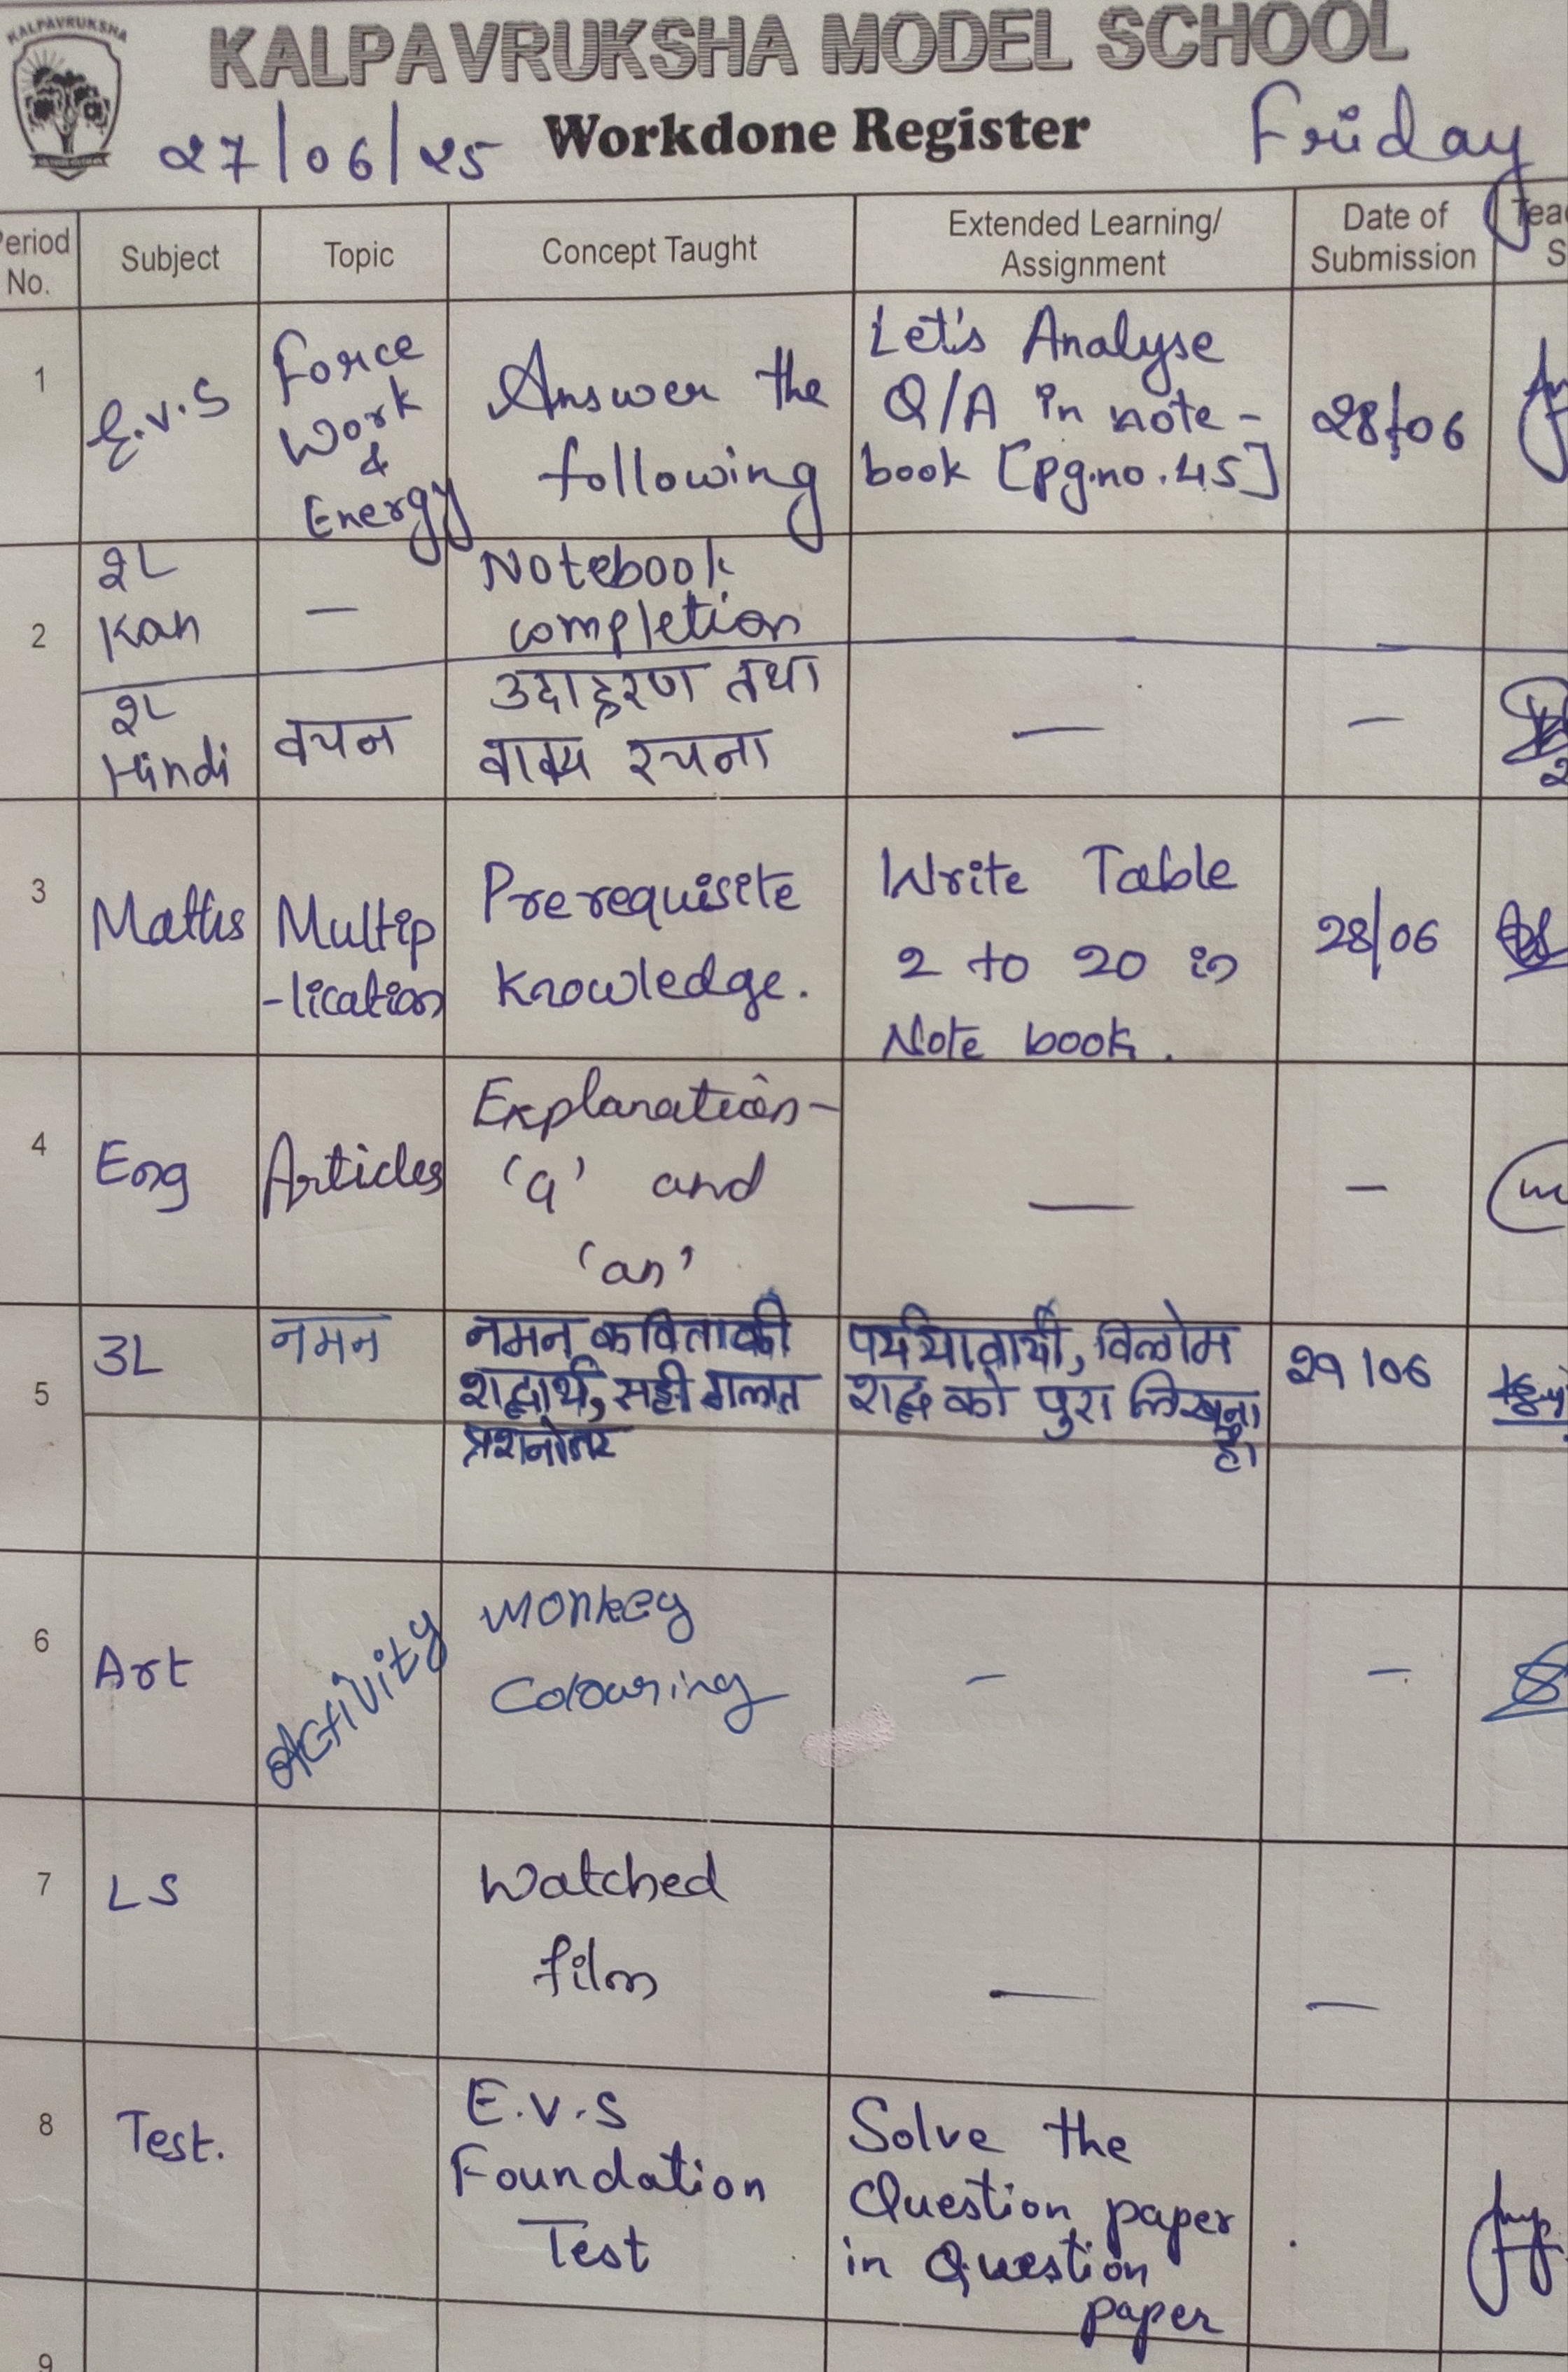 KALPAVRUKSHA
KALPAVRUKSHA MODEL SCHOOL
27/06/25 Workdone Register Friday
Period No. Subject Topic Concept Taught Extended Learning/ Assignment Date of Submission
1 E.V.S Force Work & Energy Answer the following Let's Analyse Q/A in note-book [pg.no.45] 28/06
2 2L Kan — Notebook completion —
2L Hindi वचन उदाहरण तथा वाक्य रचना — —
3 Maths Multip-lication Prerequisite Knowledge. Write Table 2 to 20 in Note book. 28/06
4 Eng Articles Explanation- 'a' and 'an' — —
5 3L नमन नमन कविता की शब्दार्थ, सही गलत प्रशनोतर पर्ययावायी, विलोम शब्द को पुरा लिखना है। 29/06
6 Art Activity Monkey Colouring — —
7 LS Watched film — —
8 Test. E.V.S Foundation Test Solve the Question paper in Question paper
9